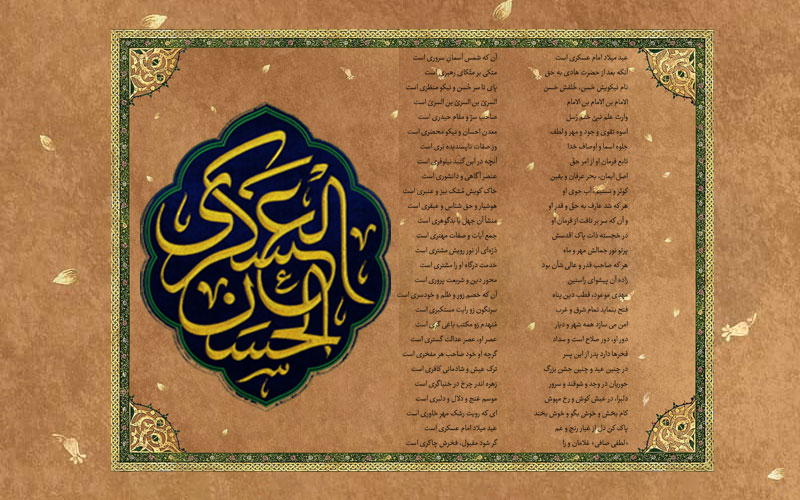 عید میلاد امام عسکری است آن که شمس آسمان سروری است
آنکه بعد از حضرت هادی به حق متکی بر متّکای رهبری است
نام نیکویش حَسن، خُلقش حَسن پای تا سر حُسن و نیکو منظری است
الامام بن الامام بن الامام السریّ بن السریّ بن السریّ است
وارث علم نبیّ ختم رُسل صاحب سرّ و مقام حیدری است
اسوه تقوی و جود و مهر و لطف معدن احسان و نیکو محضری است
جلوه اسما و اوصاف خدا وز صفات ناپسندیده بَری است
تابع فرمان او از امر حق آنچه در این گنبد نیلوفری است
اصل ایمان، بحر عرفان و یقین عنصر آگاهی و دانشوری است
کوثر و تسنیم، آب جوی او خاک کویش مُشک بیز و عنبری است
هر که شد عارف به حقّ و قدر او هوشیار و حق شناس و عبقری است
و آن که سر بر تافت از فرمان او منشأ آن جهل یا بدگوهری است
در خجسته ذات پاک اقدسش جمع آیات و صفات مهتری است
پرتو نور جمالش مهر و ماه ذرّه‌ای از نور رویش مشتری است
هر که صاحب قدر و عالی شأن بود خدمت درگاه او را مشتری است
زاده آن پیشوای راستین محور دین و شریعت پروری است
مهدی موعود، قطب دین پناه آن که خصم زور و ظلم و خودسری است
فتح بنماید تمام شرق و غرب سرنگون زو رایت مستکبری است
امن می سازد همه شهر و دیار مُنهدم زو مکتب یاغی گری است
دور او، دور صلاح است و سداد عصر او، عصر عدالت گستری است
فخرها دارد پدر از این پسر گرچه او خود صاحب هر مفخری است
در چنین عید و چنین جشن بزرگ ترک عیش و شادمانی کافری است
حوریان در وجد و شوقند و سرور زهره اندر چرخ در خنیاگری است
دلبرا، در عیش کوش و رخ مپوش موسم غنج و دلال و دلبری است
کام بخش و خوش بگو و خوش بخند ای که رویت رشک مهر خاوری است
پاک کن دل از غبار رنج و غم عید میلاد امام عسکری است
«لطفی صافی» غلامان و را گر شود مقبول، فخرش چاکری است
الحسن ابن علی العسکری